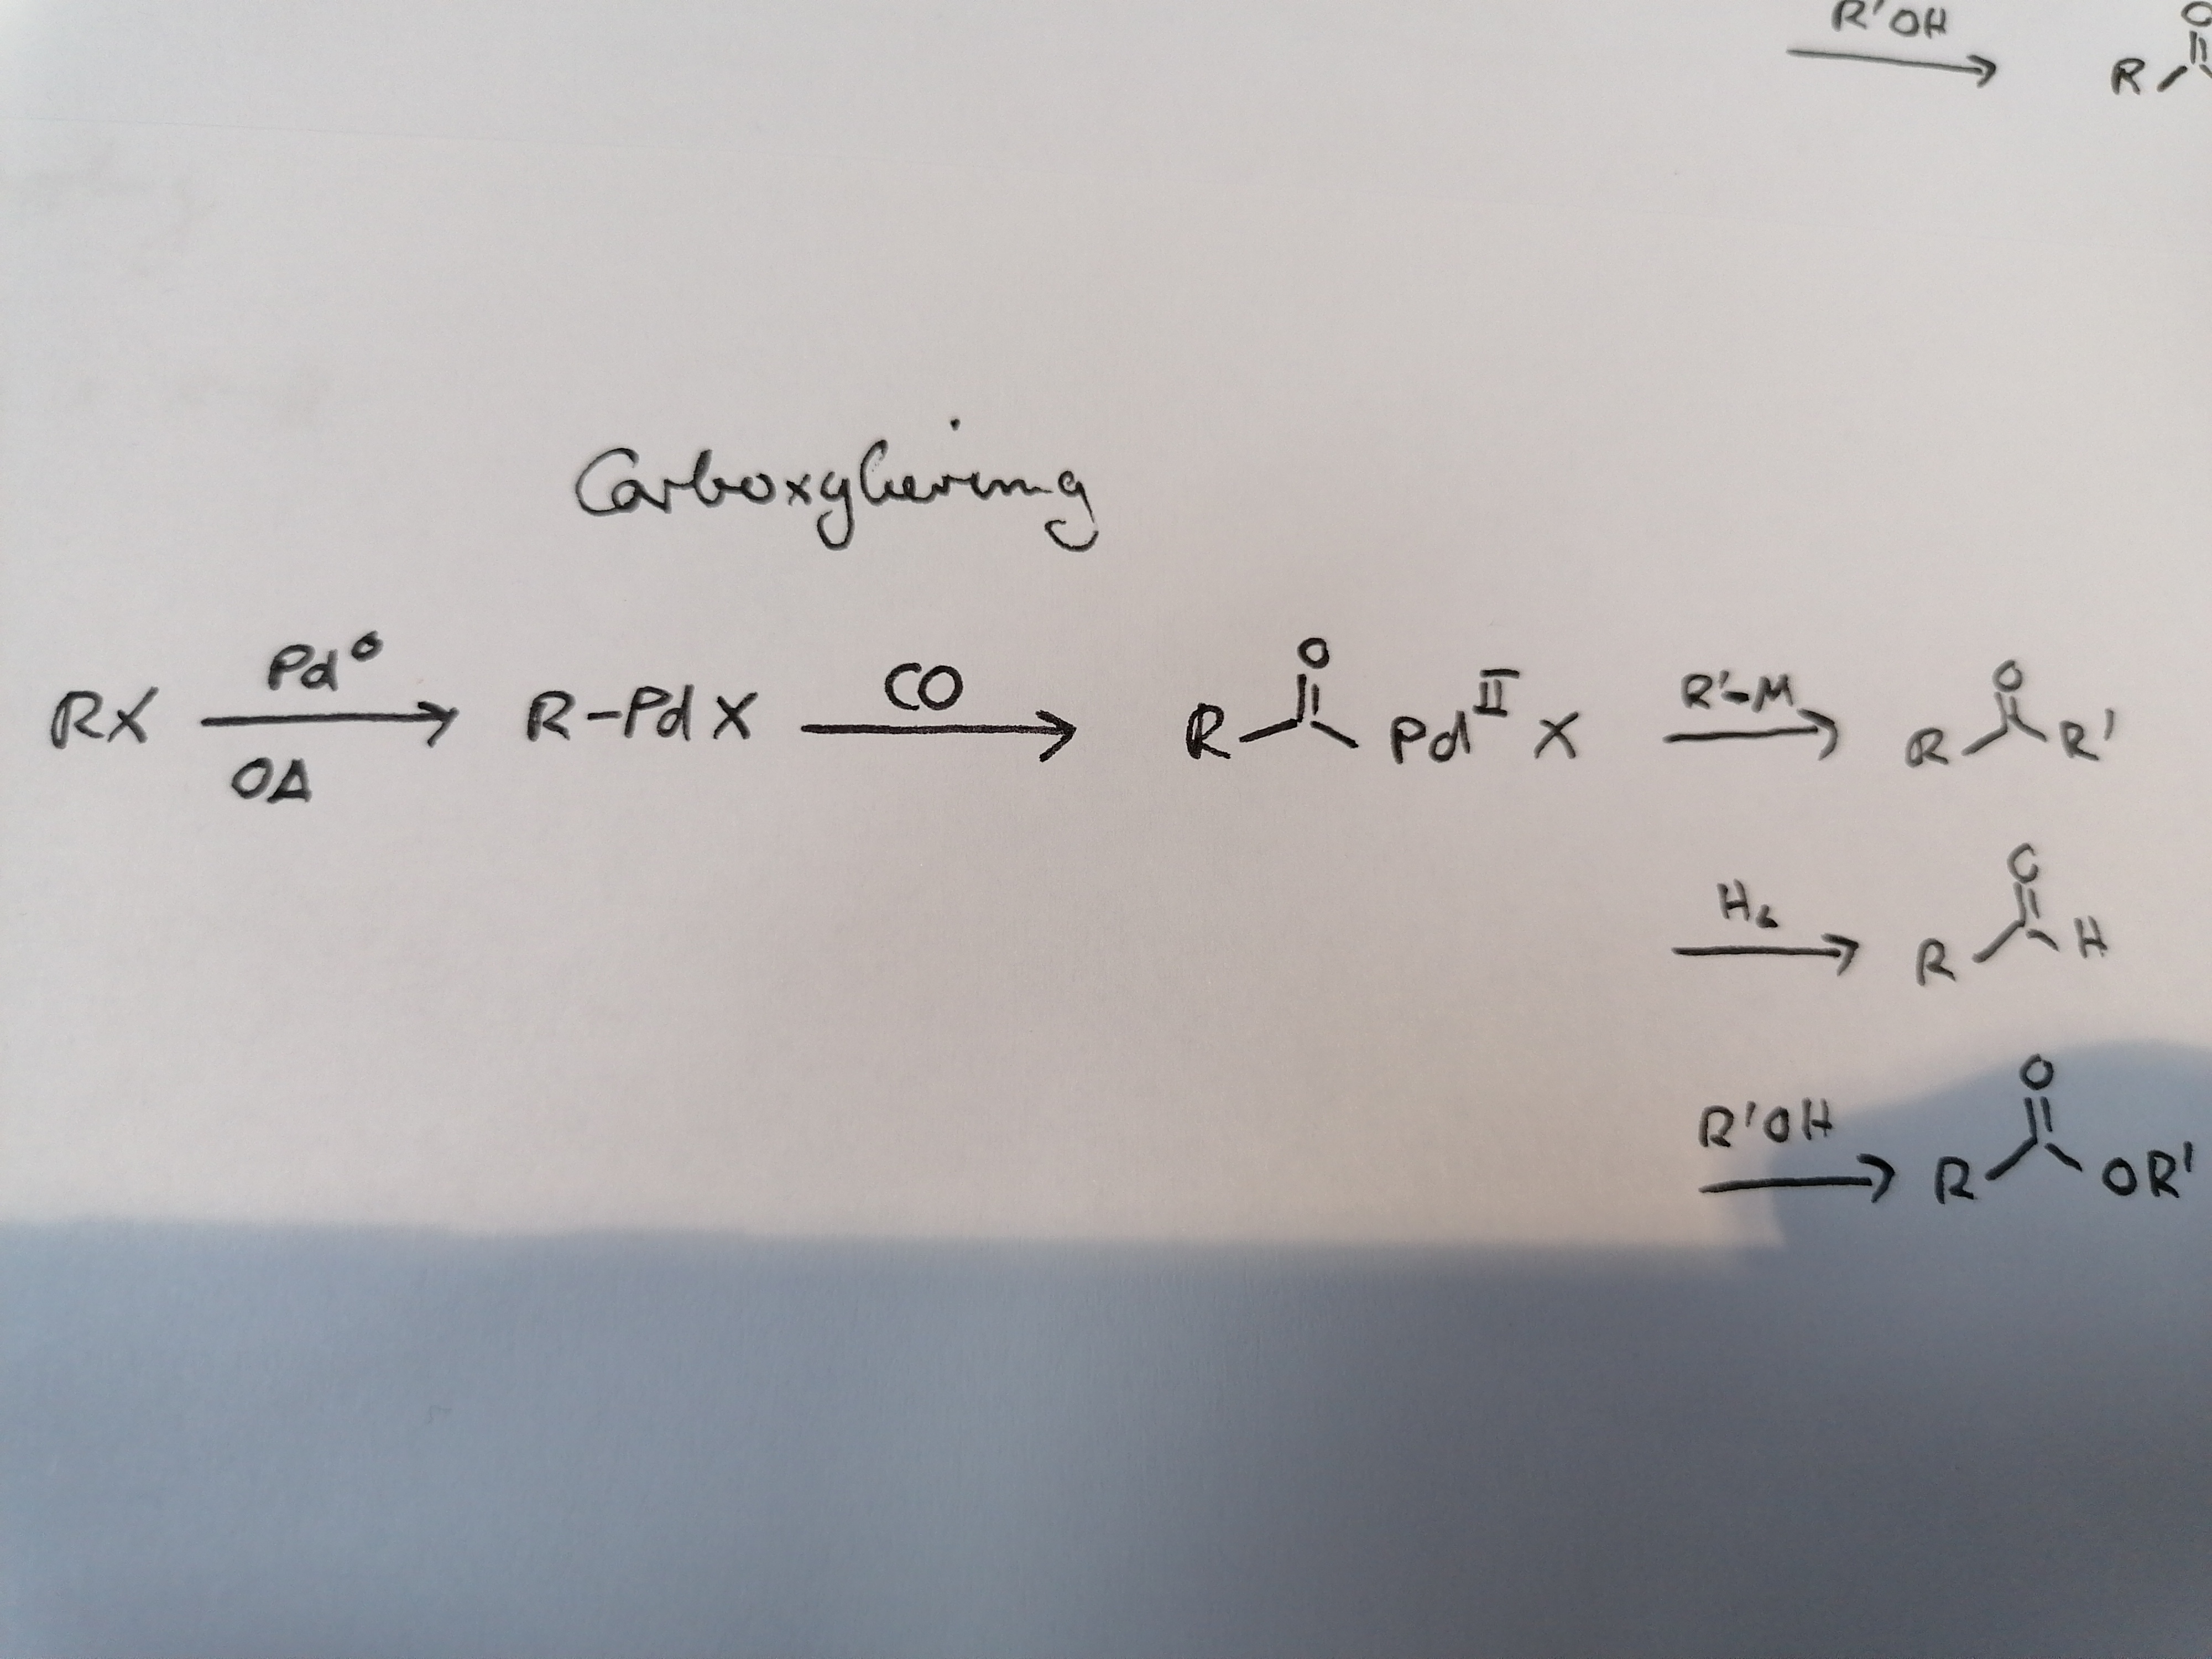 R'OH O R
Carboxylierung
RX Pd⁰ OA R-PdX CO R O Pd^II X R'-M R O R'
H₂ R O H
R'OH R O OR'